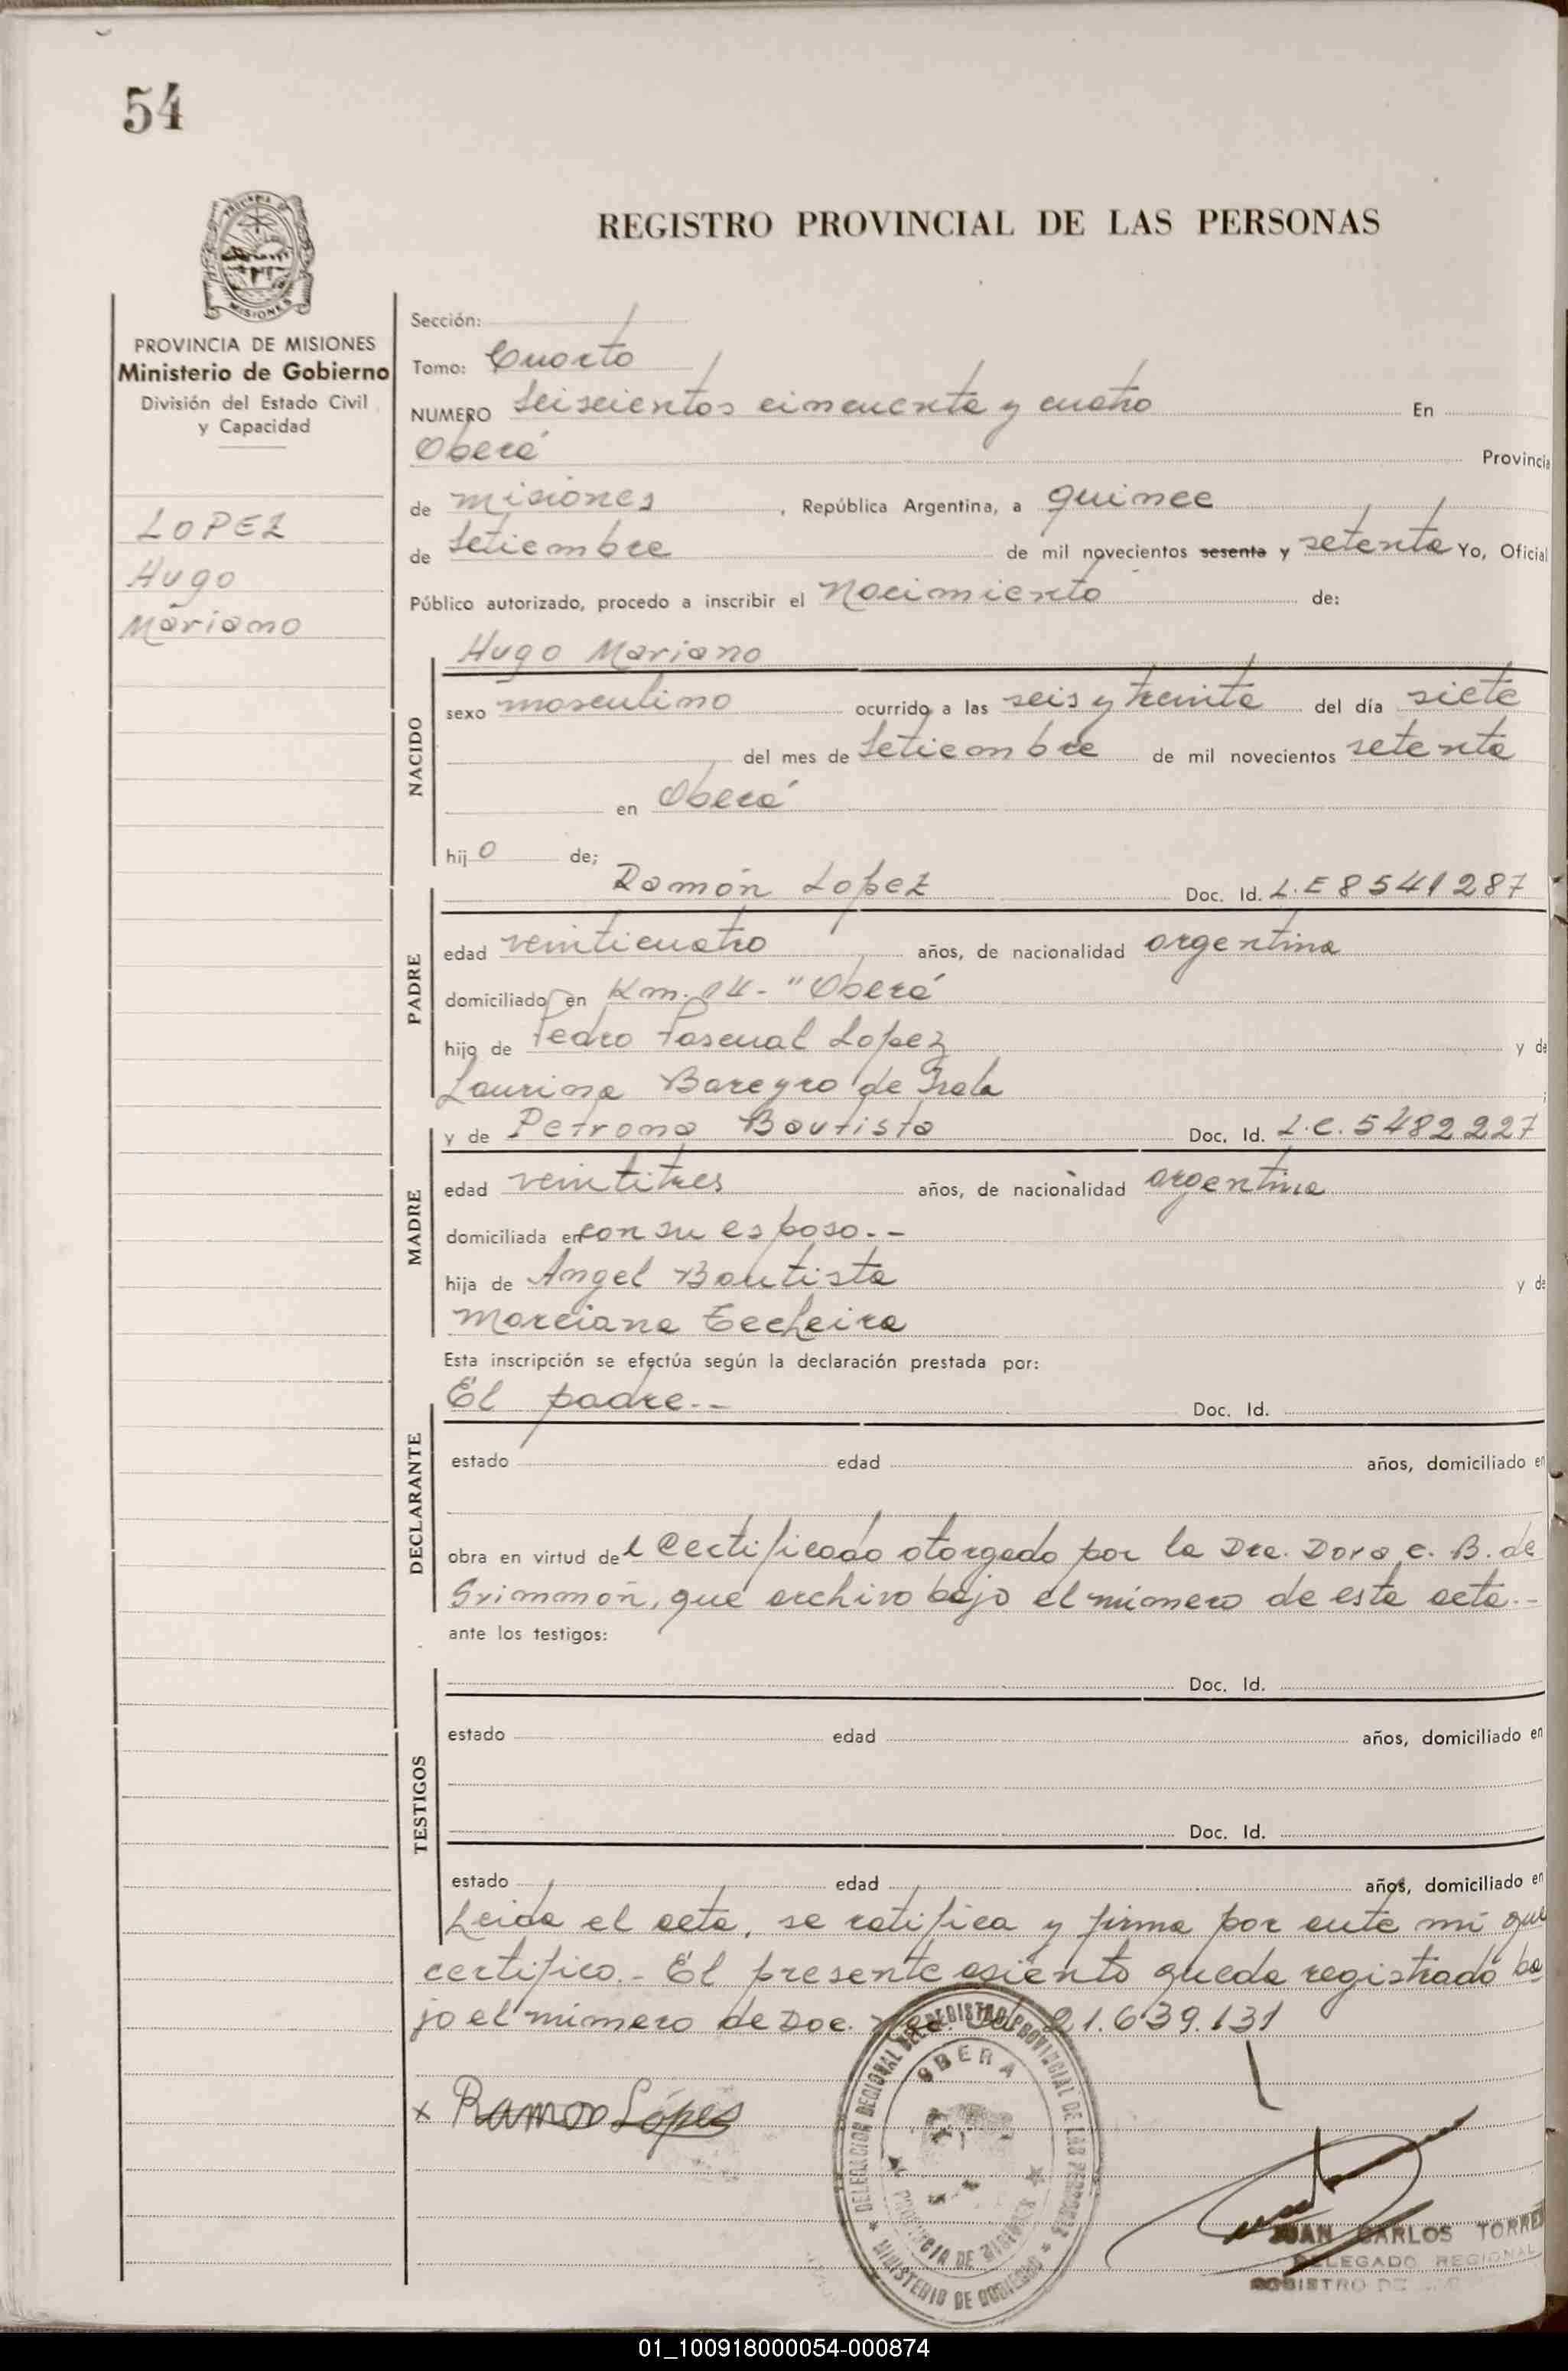 54
REGISTRO PROVINCIAL DE LAS PERSONAS
MISIONES
PROVINCIA DE MISIONES
Ministerio de Gobierno
División del Estado Civil
y Capacidad
LOPEZ
Hugo
Mariano
Sección:
Tomo: Cuarto
NUMERO Seiscientos cincuenta y cuatro En
Oberá Provincia
de Misiones, República Argentina, a quince
de Setiembre de mil novecientos sesenta y setenta Yo, Oficial
Público autorizado, procedo a inscribir el Nacimiento de:
Hugo Mariano
NACIDO
sexo masculino ocurrido a las seis y treinta del día siete
del mes de Setiembre de mil novecientos setenta
en Oberá
hijo de;
Ramón Lopez Doc. Id. L.E 8541287
PADRE
edad veinticuatro años, de nacionalidad argentina
domiciliado en Km. 14 - "Oberá
hijo de Pedro Pascual Lopez y de
Laurina Bareyro de Irala
y de Petrona Bautista Doc. Id. L.C. 5482227
MADRE
edad veintitres años, de nacionalidad argentina
domiciliada en con su esposo.--
hija de Angel Bautista y de
Marciana Techeira
Esta inscripción se efectúa según la declaración prestada por:
El padre.-- Doc. Id.
DECLARANTE
estado edad años, domiciliado en
obra en virtud del Certificado otorgado por la Dra. Dora C. B. de
que archivo bajo el número de esta acta.--
ante los testigos:
Doc. Id.
TESTIGOS
estado edad años, domiciliado en
Doc. Id.
estado edad años, domiciliado en
Leida el acta, se ratifica y firma por ante mi que
certifico.- El presente asiento queda registrado ba
jo el número de Doc. 21.639.131
x Ramon López
DELEGACION REGIONAL DEL REGISTRO PROVINCIAL DE LAS PERSONAS
OBERA
PROVINCIA DE MISIONES
MINISTERIO DE GOBIERNO
JUAN CARLOS TORRE
DELEGADO REGIONAL
REGISTRO DE
01_100918000054-000874